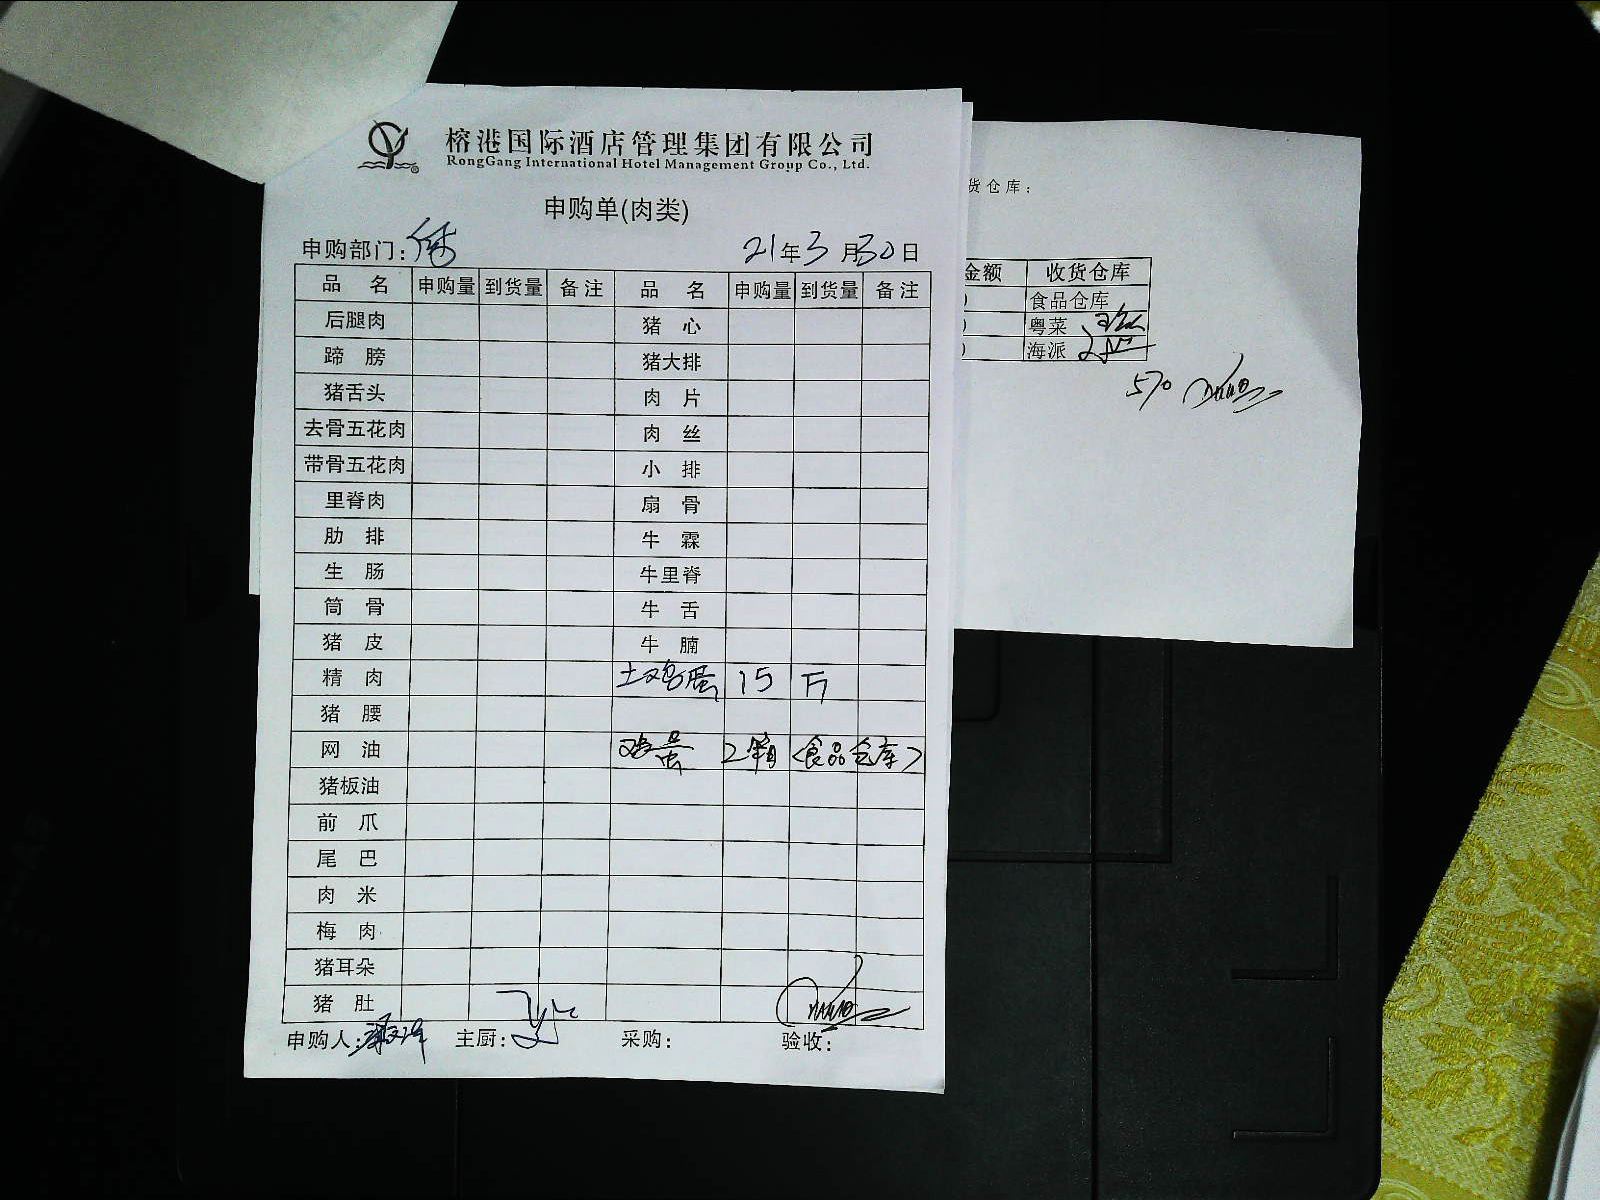 榕港国际酒店管理集团有限公司
RongGang International Hotel Management Group Co., Ltd.
申购单(肉类)
申购部门:
21年3月30日
品 名 申购量 到货量 备注 品 名 申购量 到货量 备注
后腿肉 猪心
蹄膀 猪大排
猪舌头 肉片
去骨五花肉 肉丝
带骨五花肉 小排
里脊肉 扇骨
肋排 牛霖
生肠 牛里脊
筒骨 牛舌
猪皮 牛腩
精肉 土鸡蛋 15 斤
猪腰
网油 鸡蛋 2箱 (食品仓库)
猪板油
前爪
尾巴
肉米
梅肉
猪耳朵
猪肚
申购人: 主厨: 采购: 验收:
货仓库:
金额 收货仓库
食品仓库
粤菜
海派
570